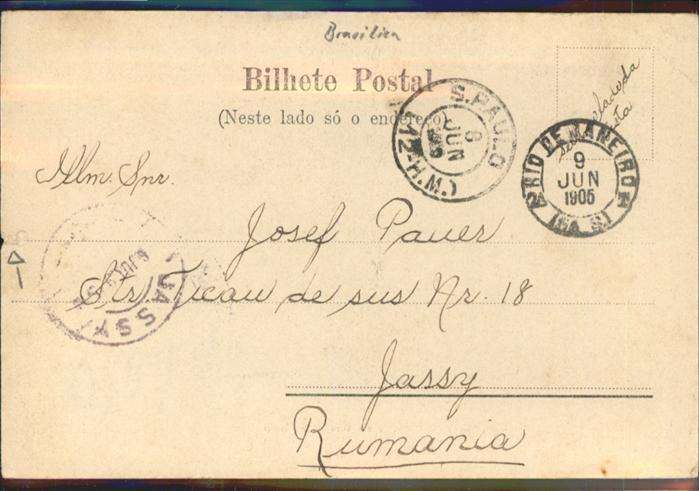 Brasilien
Bilhete Postal
(Neste lado só o endereço)
S. PAULO
8
JUN
(12-H.M.)
RIO DE JANEIRO
9
JUN
1905
Illm. Snr.
Josef Pauer
Str. Ticau de sus Nr. 18
JASSY
Jassy
Rumania